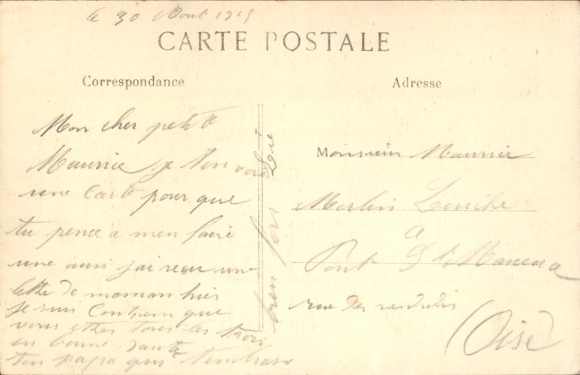 le 30 Aout 1915
CARTE POSTALE
Correspondance
Adresse
Mon cher petit
Maurice je ten voie
une carte pour que
tu pence a men faire
une ausi jai recu une
lettre de maman hier
je suis contem que
vous ettes tous les trois
en bonne sante
ton papa qui tembrase
bien fors
Monsieur Maurice
Merlin
a
Pont St Maxence
rue des
(Oise)